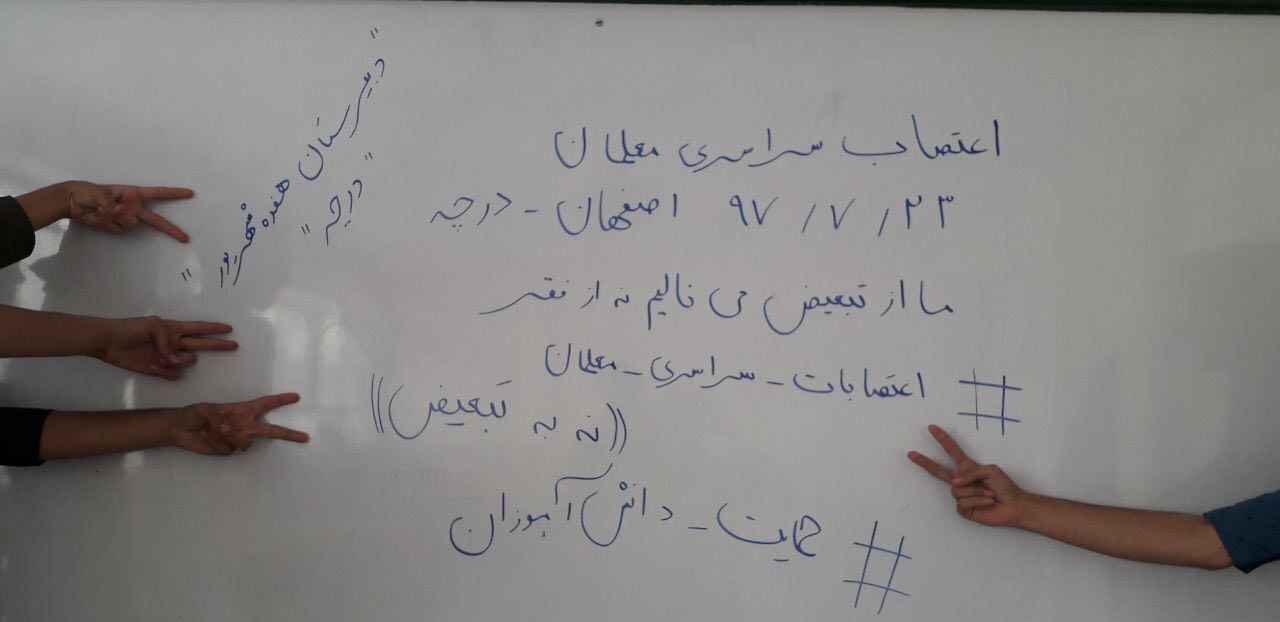 اعتصاب سراسری معلمان
۲۳ / ۷ / ۹۷ اصفهان - درچه
ما از تبعیض می نالیم نه از فقر
# اعتصابات - سراسری - معلمان
((نه به تبعیض))
# حمایت - دانش آموزان
"دبیرستان هفده شهریور"
"درچه"